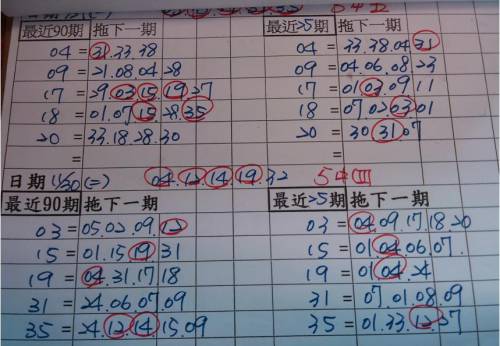 最近90期 拖下一期 最近25期 拖下一期
04 = 31.33.38 04 = 33.38.04.31
09 = 21.08.04.28 09 = 04.06.08.23
17 = 29.03.15.19.27 17 = 01.03.09.11
18 = 01.07.15.28.35 18 = 07.02.03.01
20 = 33.18.28.30 20 = 30.31.07
= =
日期 11/30 (二) 04.12.14.19.32 5中
最近90期 拖下一期 最近25期 拖下一期
03 = 05.02.09.12 03 = 04.09.17.18.20
15 = 01.15.19.31 15 = 01.04.06.07.
19 = 04.31.17.18 19 = 01.04.24
31 = 24.06.07.09 31 = 07.01.08.09
35 = 24.12.14.15.09 35 = 01.33.12.27